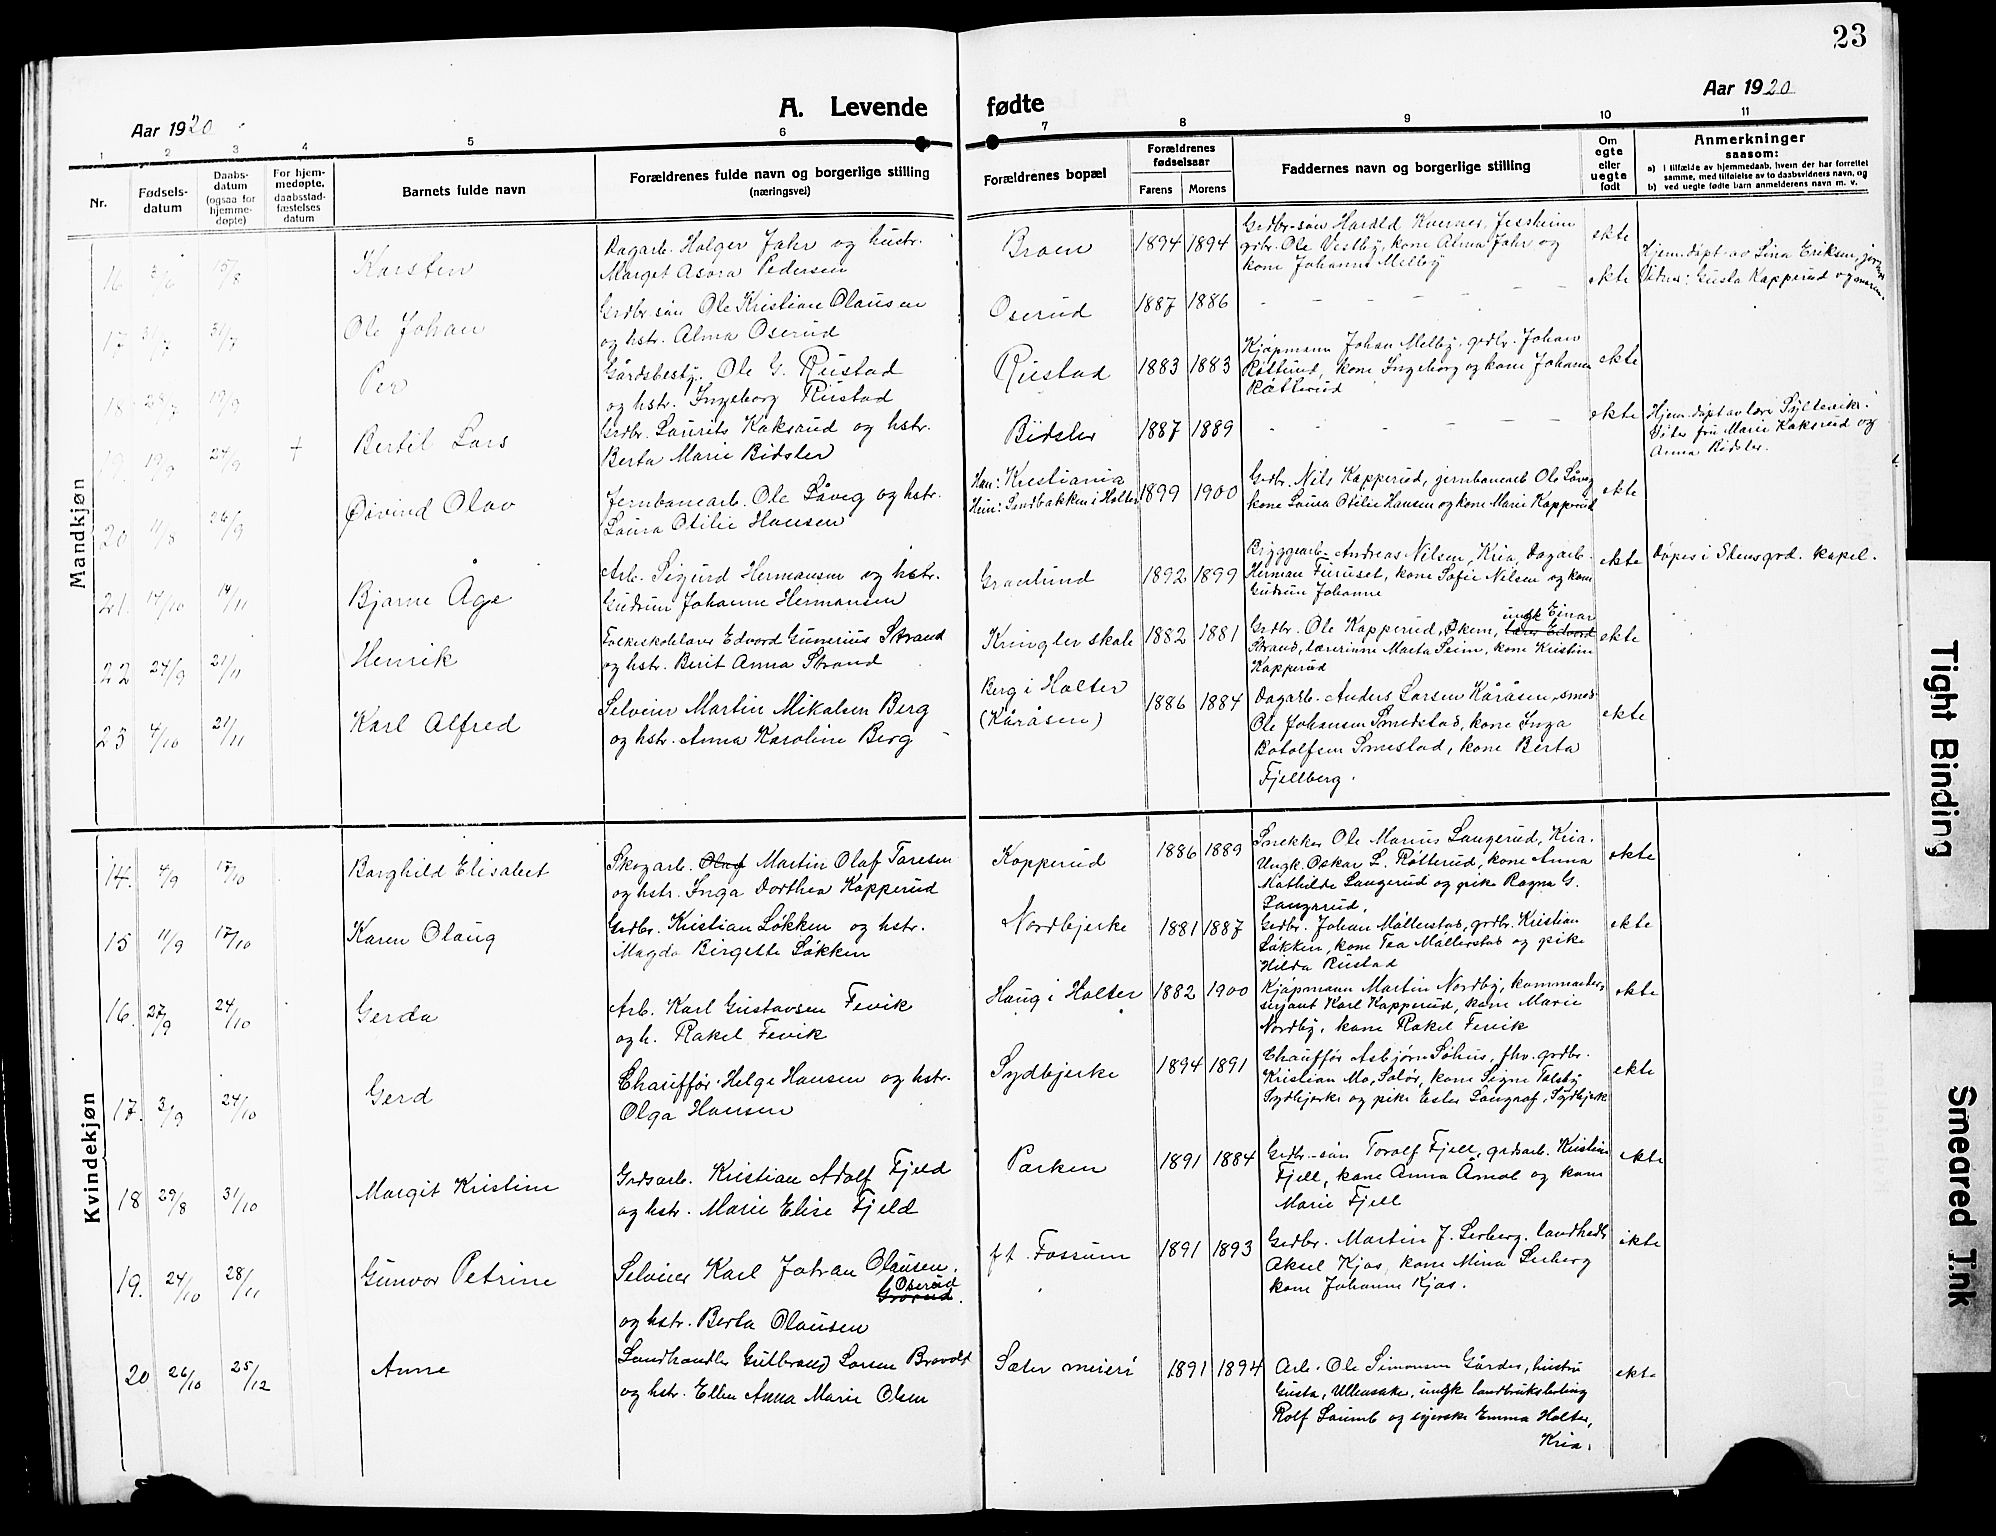 23
Aar 1920
A. Levende fødte
Aar 1920
1 2 3 4 5 6 7 8 9 10 11
Nr.
Fødsels-
datum
Daabs-
datum
(ogsaa for
hjemme-
døpte)
For hjem-
medøpte.
daabsstad-
fæstelses
datum
Barnets fulde navn
Forældrenes fulde navn og borgerlige stilling
(næringsvei)
Forældrenes bopæl
Forældrenes
fødselsaar
Farens Morens
Faddernes navn og borgerlige stilling
Om
egte
eller
uegte
født
Anmerkninger
saasom:
a) i tilfælde av hjemmedaab, hvem der har forrettet
samme, med tilføielse av to daabsvidners navn, og
b) ved uegte fødte barn anmelderens navn m. v.
Mandkjøn
16 15/8 Karsten
Dagarb. Holger Jahr og hustr.
Marget Asora Pedersen
Braen 1894 1894
Grdbr.søn Harald Kverner, Jessheim
grbr. Ole Vestby, kone Alma Jahr og
kone Johanne Melby
ekte
17 31/7 31/7 Ole Johan
Grdbr.søn Ole Kristian Olausen
og hstr. Alma Oserud
Oserud 1887 1886 - - - - - -
ekte
Hjem.døpt av Lina Eriksen, 
Vidner: Gusta Kapperud og moren.
18 19/9 Per
Gårdsbesty. Ole G. Rustad
og hstr. Ingeborg Rustad
Rustad 1883 1883
Kjøpmann Johan Melby, grdbr. Johan
Røtterud, kone Ingeborg og kone Johanne
Røtterud
ekte
19 19/9 24/9 + Bertil Lars
Grdbr. Laurits Kaksrud og hstr.
Berta Marie Bidsler
Bidsler 1887 1889 - - - - -
ekte
Hjem.døpt av
fru Marie Kaksrud og
Anna Bidsler.
20 11/8 26/9 Øivind Olav
Jernbanearb. Ole Låveg og hstr.
Laura Otilie Hansen
Han: Kristiania
Hun: Sandbakken i Holter
1899 1900
Grdbr. Nils Kapperud, jernbanearb Ole Låveg
kone Laura Otilie Hansen og kone Marie Kapperud
ekte
21. 17/10 14/11 Bjarne Åge
Arb. Sigurd Hermansen og hstr.
Gudrun Johanne Hermansen
Granlund 1892 1899
Bryggearb. Andreas Nilsen, Kria, Dagarb.
Herman Furuset, kone Sofie Nilsen og kone
Gudrun Johanne
ekte
Døpes i Stensgrd. kapel.
22 24/9 21/11 Henrik
Folkeskolelærer Edvard Gunerius Strand
og hstr. Berit Anna Strand
Kringler skole 1882 1881
ungk Einar
Grdbr. Ole Kapperud, Økern, lærer Edvard
Strand, lærerinne Marta Seim, kone Kristine
Kapperud
ekte
23 4/10 21/11 Karl Alfred
Selveier Martin Mikalsen Berg
og hstr. Anna Karoline Berg
Berg i Holter
(Kåråsen)
1886 1884
Dagarb. Anders Larsen Kåråsen, smed
Ole Johansen Smedstad, kone Inga
Botolfsen Smestad, kone Berta
Fjellberg.
ekte
Kvindekjøn
14. 4/9 17/10 Borghild Elisabet
Skogarb. Olaf Martin Olaf Toresen
og hstr. Inga Dorthea Kapperud
Kapperud 1886 1889
Snekker Ole Marius Laugerud, Kria.
Ungk. Oskar L. Røtterud, kone Anna
Mathilde Laugerud og pike Ragna G.
Laugerud.
ekte
15 11/9 17/10 Karen Olaug
Grdbr. Kristian Løkken og hstr.
Magda Birgette Løkken
Nordbjerke 1881 1887
Grdbr. Johan Møllerstad, grdbr. Kristian
Løkken, kone Tea Møllerstad og pike
Hilda Rustad
ekte
16. 27/9 24/10 Gerda
Arb. Karl Gustavsen Fevik
og h. Rakel Fevik
Haug i Holter 1882 1900
Kjøpmann Martin Nordby,
serjant Karl Kapperud, kone Marie
Nordby, kone Rakel Fevik
ekte
17. 3/9 24/10 Gerd
Chauffør Helge Hansen og hstr.
Olga Hansen
Sydbjerke 1894 1891
Chauffør Asbjørn Søhus, fhv. grdbr.
Kristian Mo, Solør, kone Signe Talsby
Sydbjerke og pike Ester Langaaf, Sydbjerke
ekte
18 29/8 31/10 Margit Kristine
Grdsarb. Kristian Adolf Fjeld
og hstr. Marie Elise Fjeld
Parken 1891 1884
Grdbr.-søn Toralf Fjell, grdsarb. Kristian
Fjell, kone Anna Åmot og kone
Marie Fjell
ekte
19. 24/10 28/11 Gunvor Petrine
Selveier Karl Johan Olausen.
Oserud
og hstr. Berta Olausen
f.t. Fossum 1891 1893
Grdbr. Martin J. Serberg. landhedr
Aksel Kjos, kone Mina Serberg
kone Johanne Kjos.
ekte
20 26/10 25/12 Anne
Landhandler Gulbrand Larsen Bravolt
og hstr. Ellen Anna Marie Olsen
Sæter meieri 1891 1894
Arb. Ole Simonsen Gårder, hustru
Gusta, Ullensaker, ungk landbrukslærling
Rolf Laumb og syerske Emma Holter,
Kria.
ekte
Tight Binding
Smeared Ink